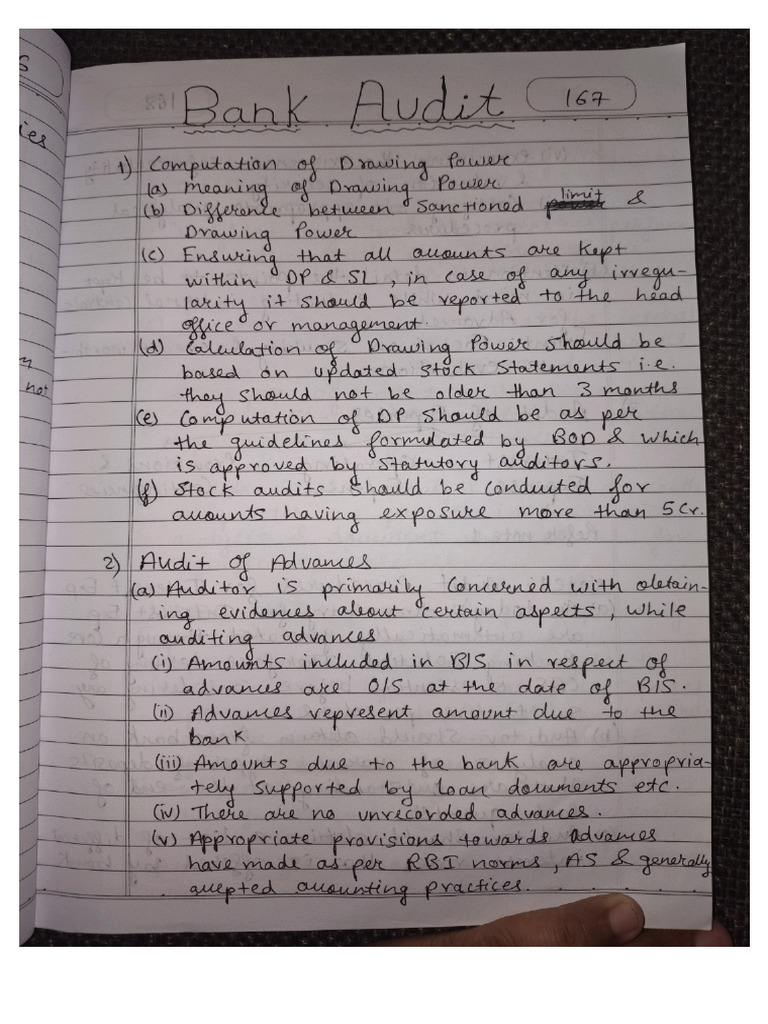 Bank Audit
167
1) Computation of Drawing Power
(a) Meaning of Drawing Power
(b) Difference between Sanctioned limit &
Drawing Power
(c) Ensuring that all accounts are kept
within DP & SL, in case of any irregu-
larity it should be reported to the head
office or management.
(d) Calculation of Drawing Power should be
based on updated stock statements i.e.
they should not be older than 3 months
(e) Computation of DP should be as per
the guidelines formulated by BOD & which
is approved by statutory auditors.
(f) Stock audits should be conducted for
accounts having exposure more than 5 Cr.
2) Audit of Advances
(a) Auditor is primarily concerned with obtain-
ing evidences about certain aspects, while
auditing advances
(i) Amounts included in B/S in respect of
advances are O/S at the date of B/S.
(ii) Advances represent amount due to the
bank
(iii) Amounts due to the bank are appropria-
tely supported by loan documents etc.
(iv) There are no unrecorded advances.
(v) Appropriate provisions towards advances
have made as per RBI norms, AS & generally
accepted accounting practices.
ies
not